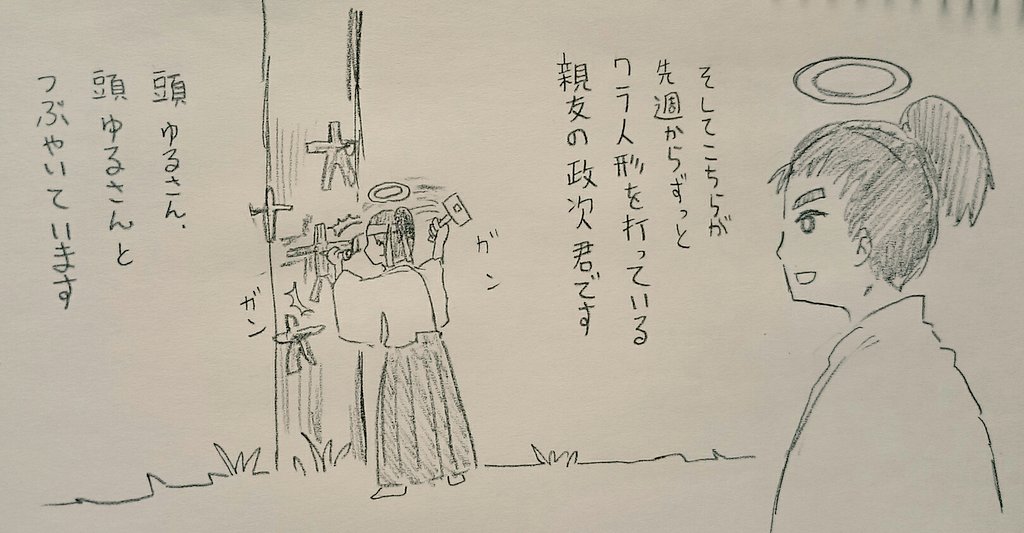 そしてこちらが
先週からずっと
ワラ人形を打っている
親友の政次君です
ガン
ガン
頭ゆるさん、
頭ゆるさんと
つぶやいています